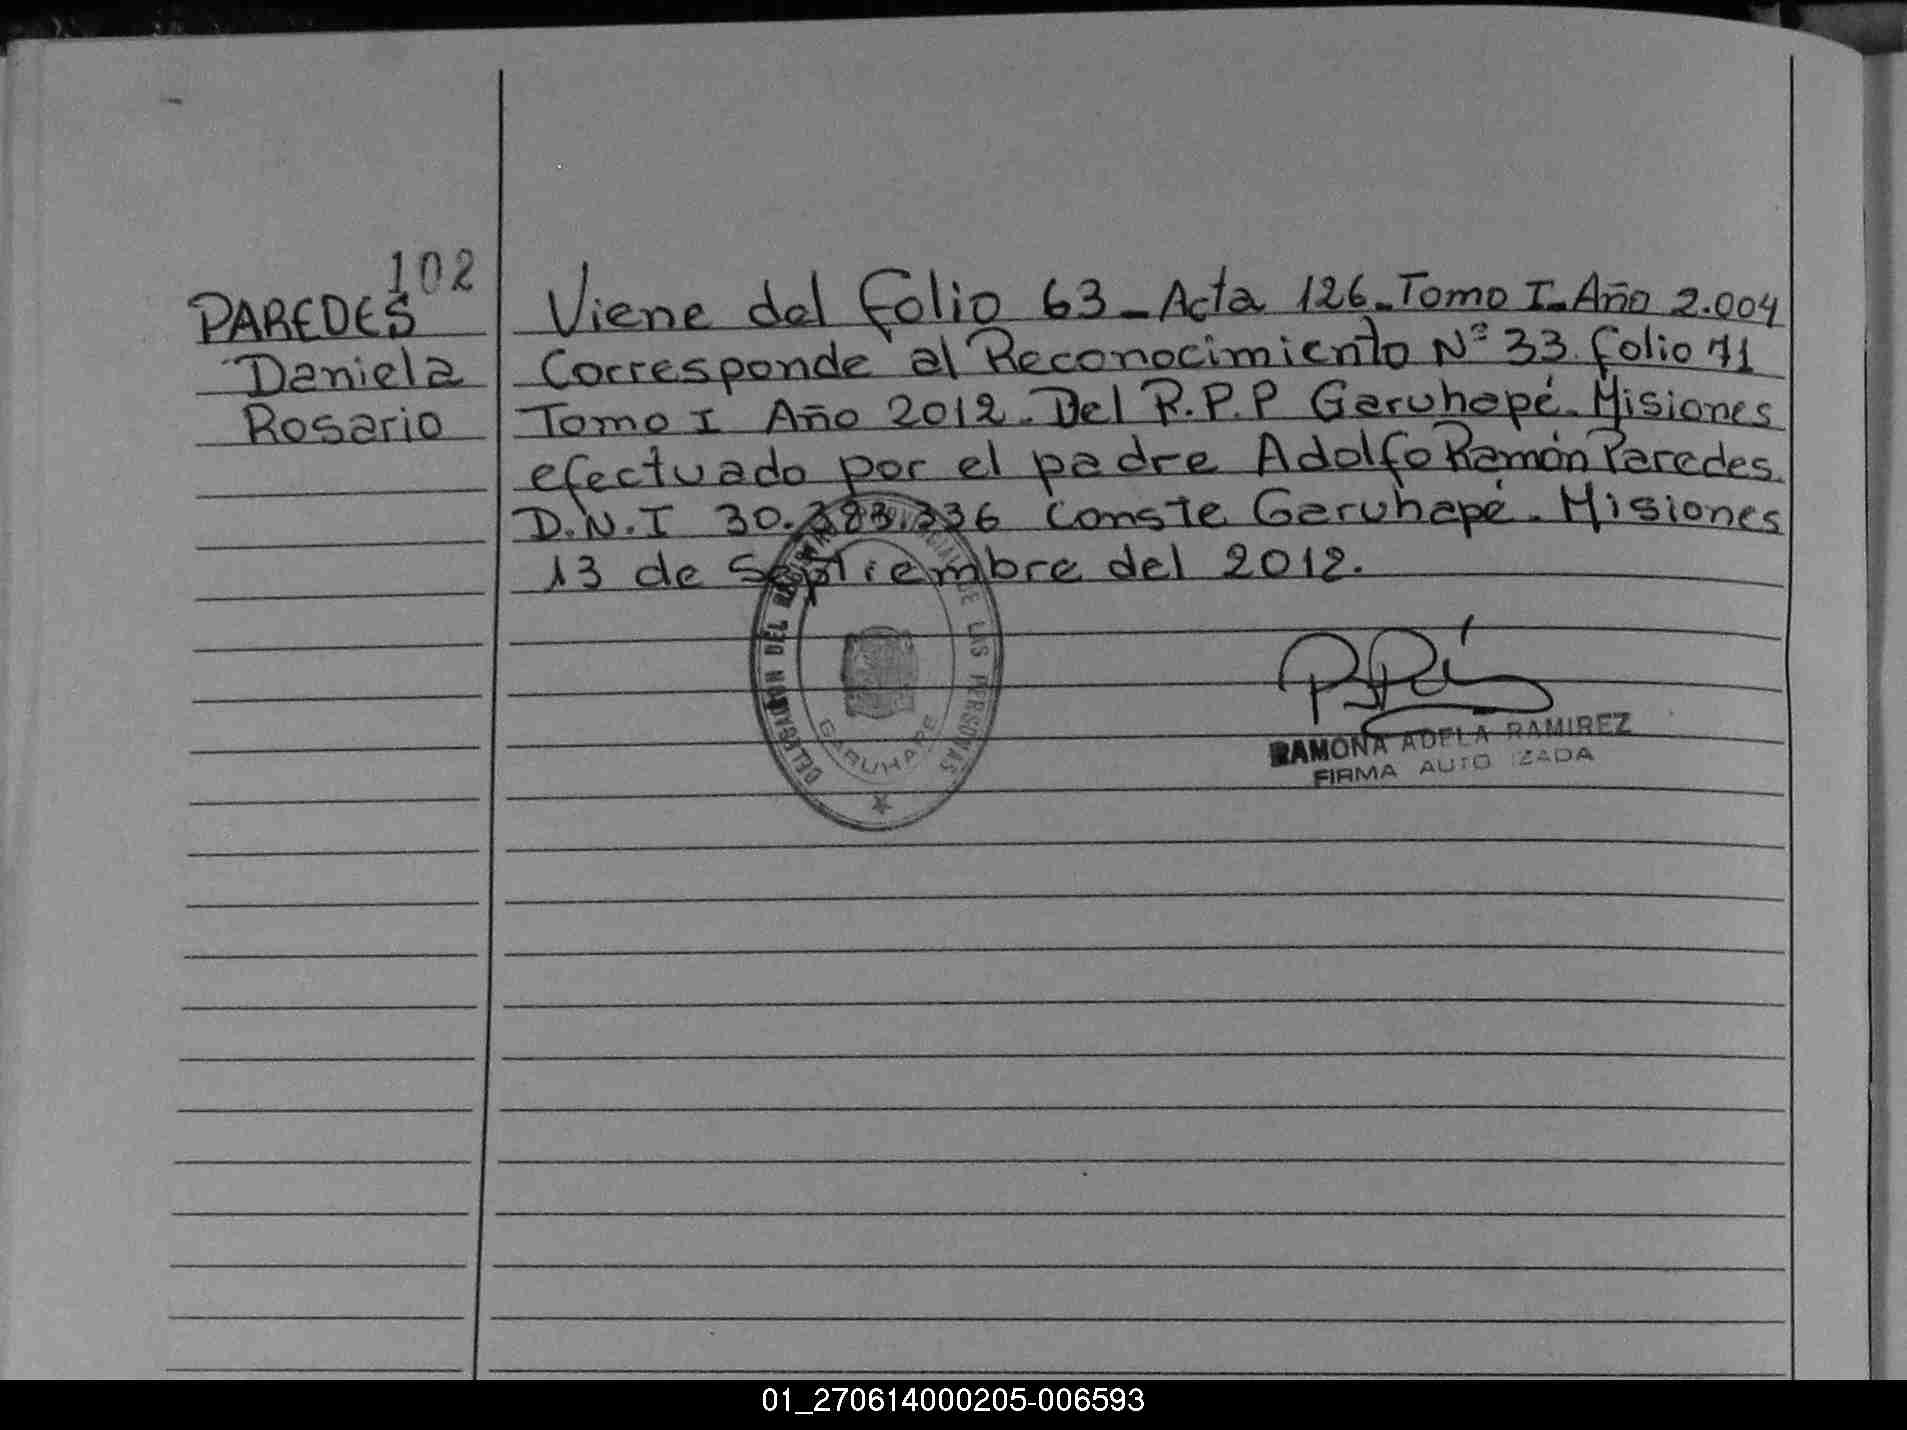 102
PAREDES
Daniela
Rosario
Viene del folio 63_Acta 126_Tomo I_Año 2.004
Corresponde al Reconocimiento Nº 33 folio 71
Tomo I Año 2012. Del R.P.P Garuhapé. Misiones
efectuado por el padre Adolfo Ramón Paredes.
D.N.I 30.383.336 conste Garuhapé. Misiones
13 de Septiembre del 2012.
DELEGACION DEL DE LAS PERSONAS
GARUHAPE
RAMONA ADELA RAMIREZ
FIRMA AUTO IZADA
01_270614000205-006593